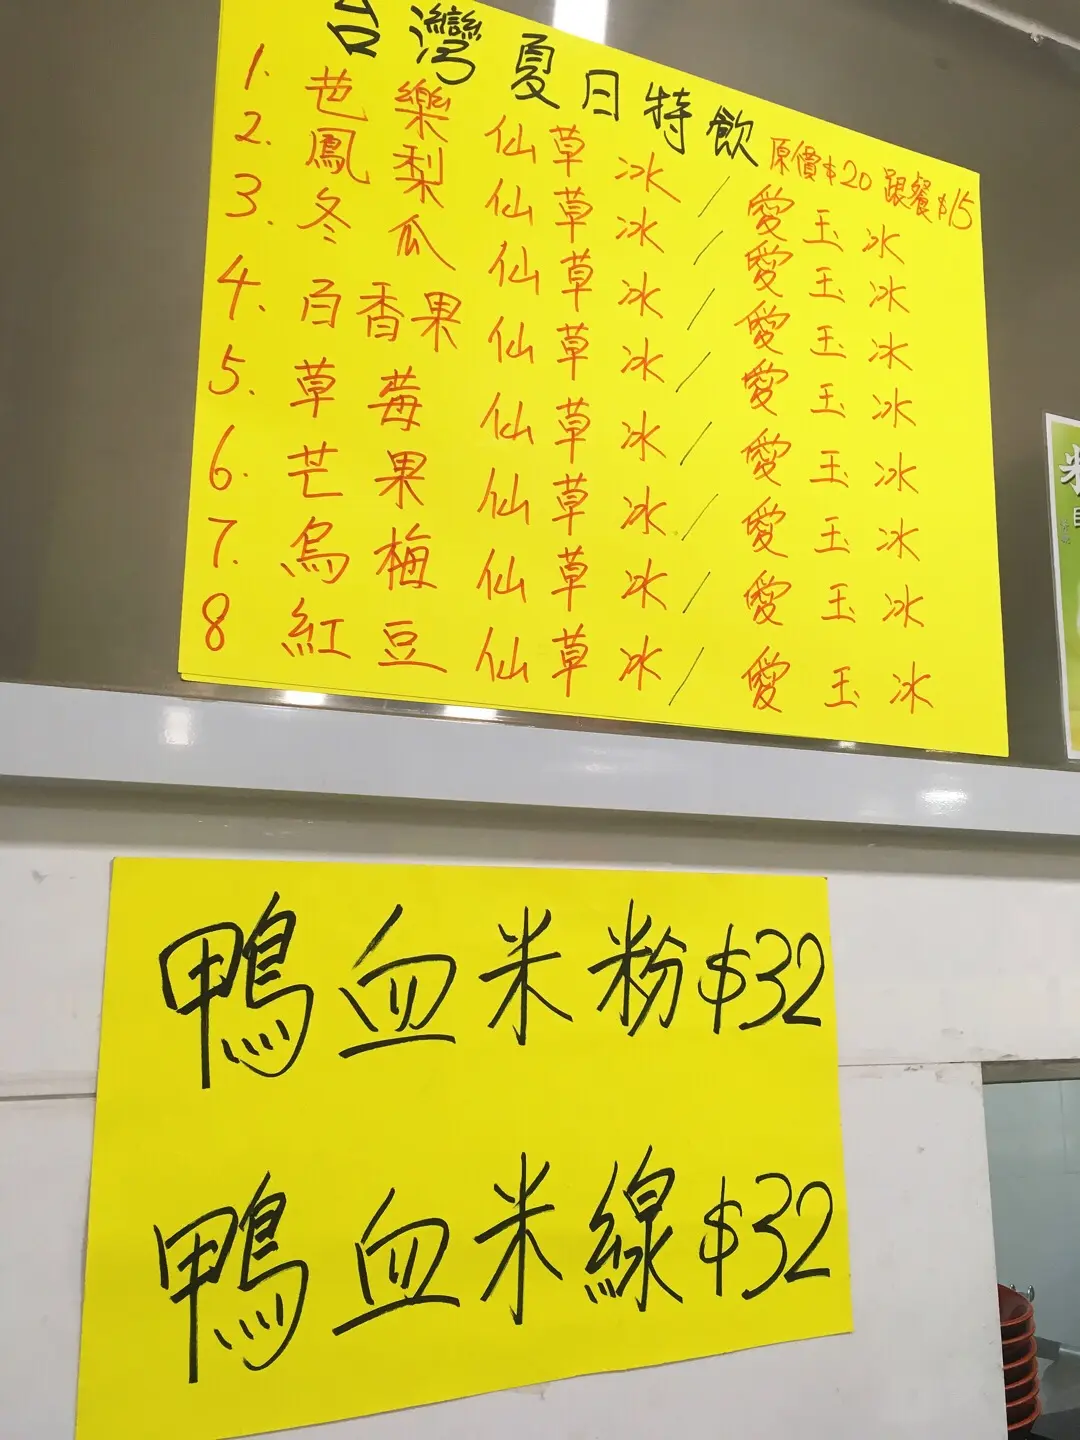 台灣夏日特飲 原價$20 跟餐$15
1. 芭樂 仙草冰/愛玉冰
2. 鳳梨 仙草冰/愛玉冰
3. 冬瓜 仙草冰/愛玉冰
4. 百香果 仙草冰/愛玉冰
5. 草莓 仙草冰/愛玉冰
6. 芒果 仙草冰/愛玉冰
7. 烏梅 仙草冰/愛玉冰
8 紅豆 仙草冰/愛玉冰
鴨血米粉$32
鴨血米線$32